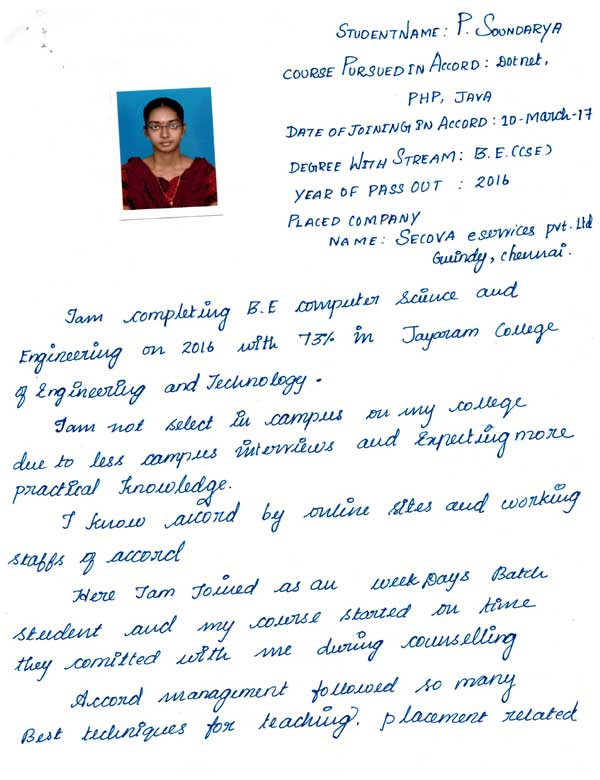 STUDENT NAME: P. SOUNDARYA
COURSE PURSUED IN ACCORD: Dot net,
PHP, JAVA
DATE OF JOINING IN ACCORD: 10-March-17
DEGREE WITH STREAM: B.E.(CSE)
YEAR OF PASS OUT : 2016
PLACED COMPANY
NAME: SECOVA eservices pvt. Ltd
Guindy, chennai.
I am completing B.E computer science and
Engineering on 2016 with 73% in Jayaram College
of Engineering and Technology.
I am not select in campus on my college
due to less campus interviews and Expecting more
practical knowledge.
I know accord by online sites and working
staffs of accord
Here I am Joined as an week Days Batch
student and my course started on time
they comitted with me during counselling
Accord management followed so many
Best techniques for teaching, placement related